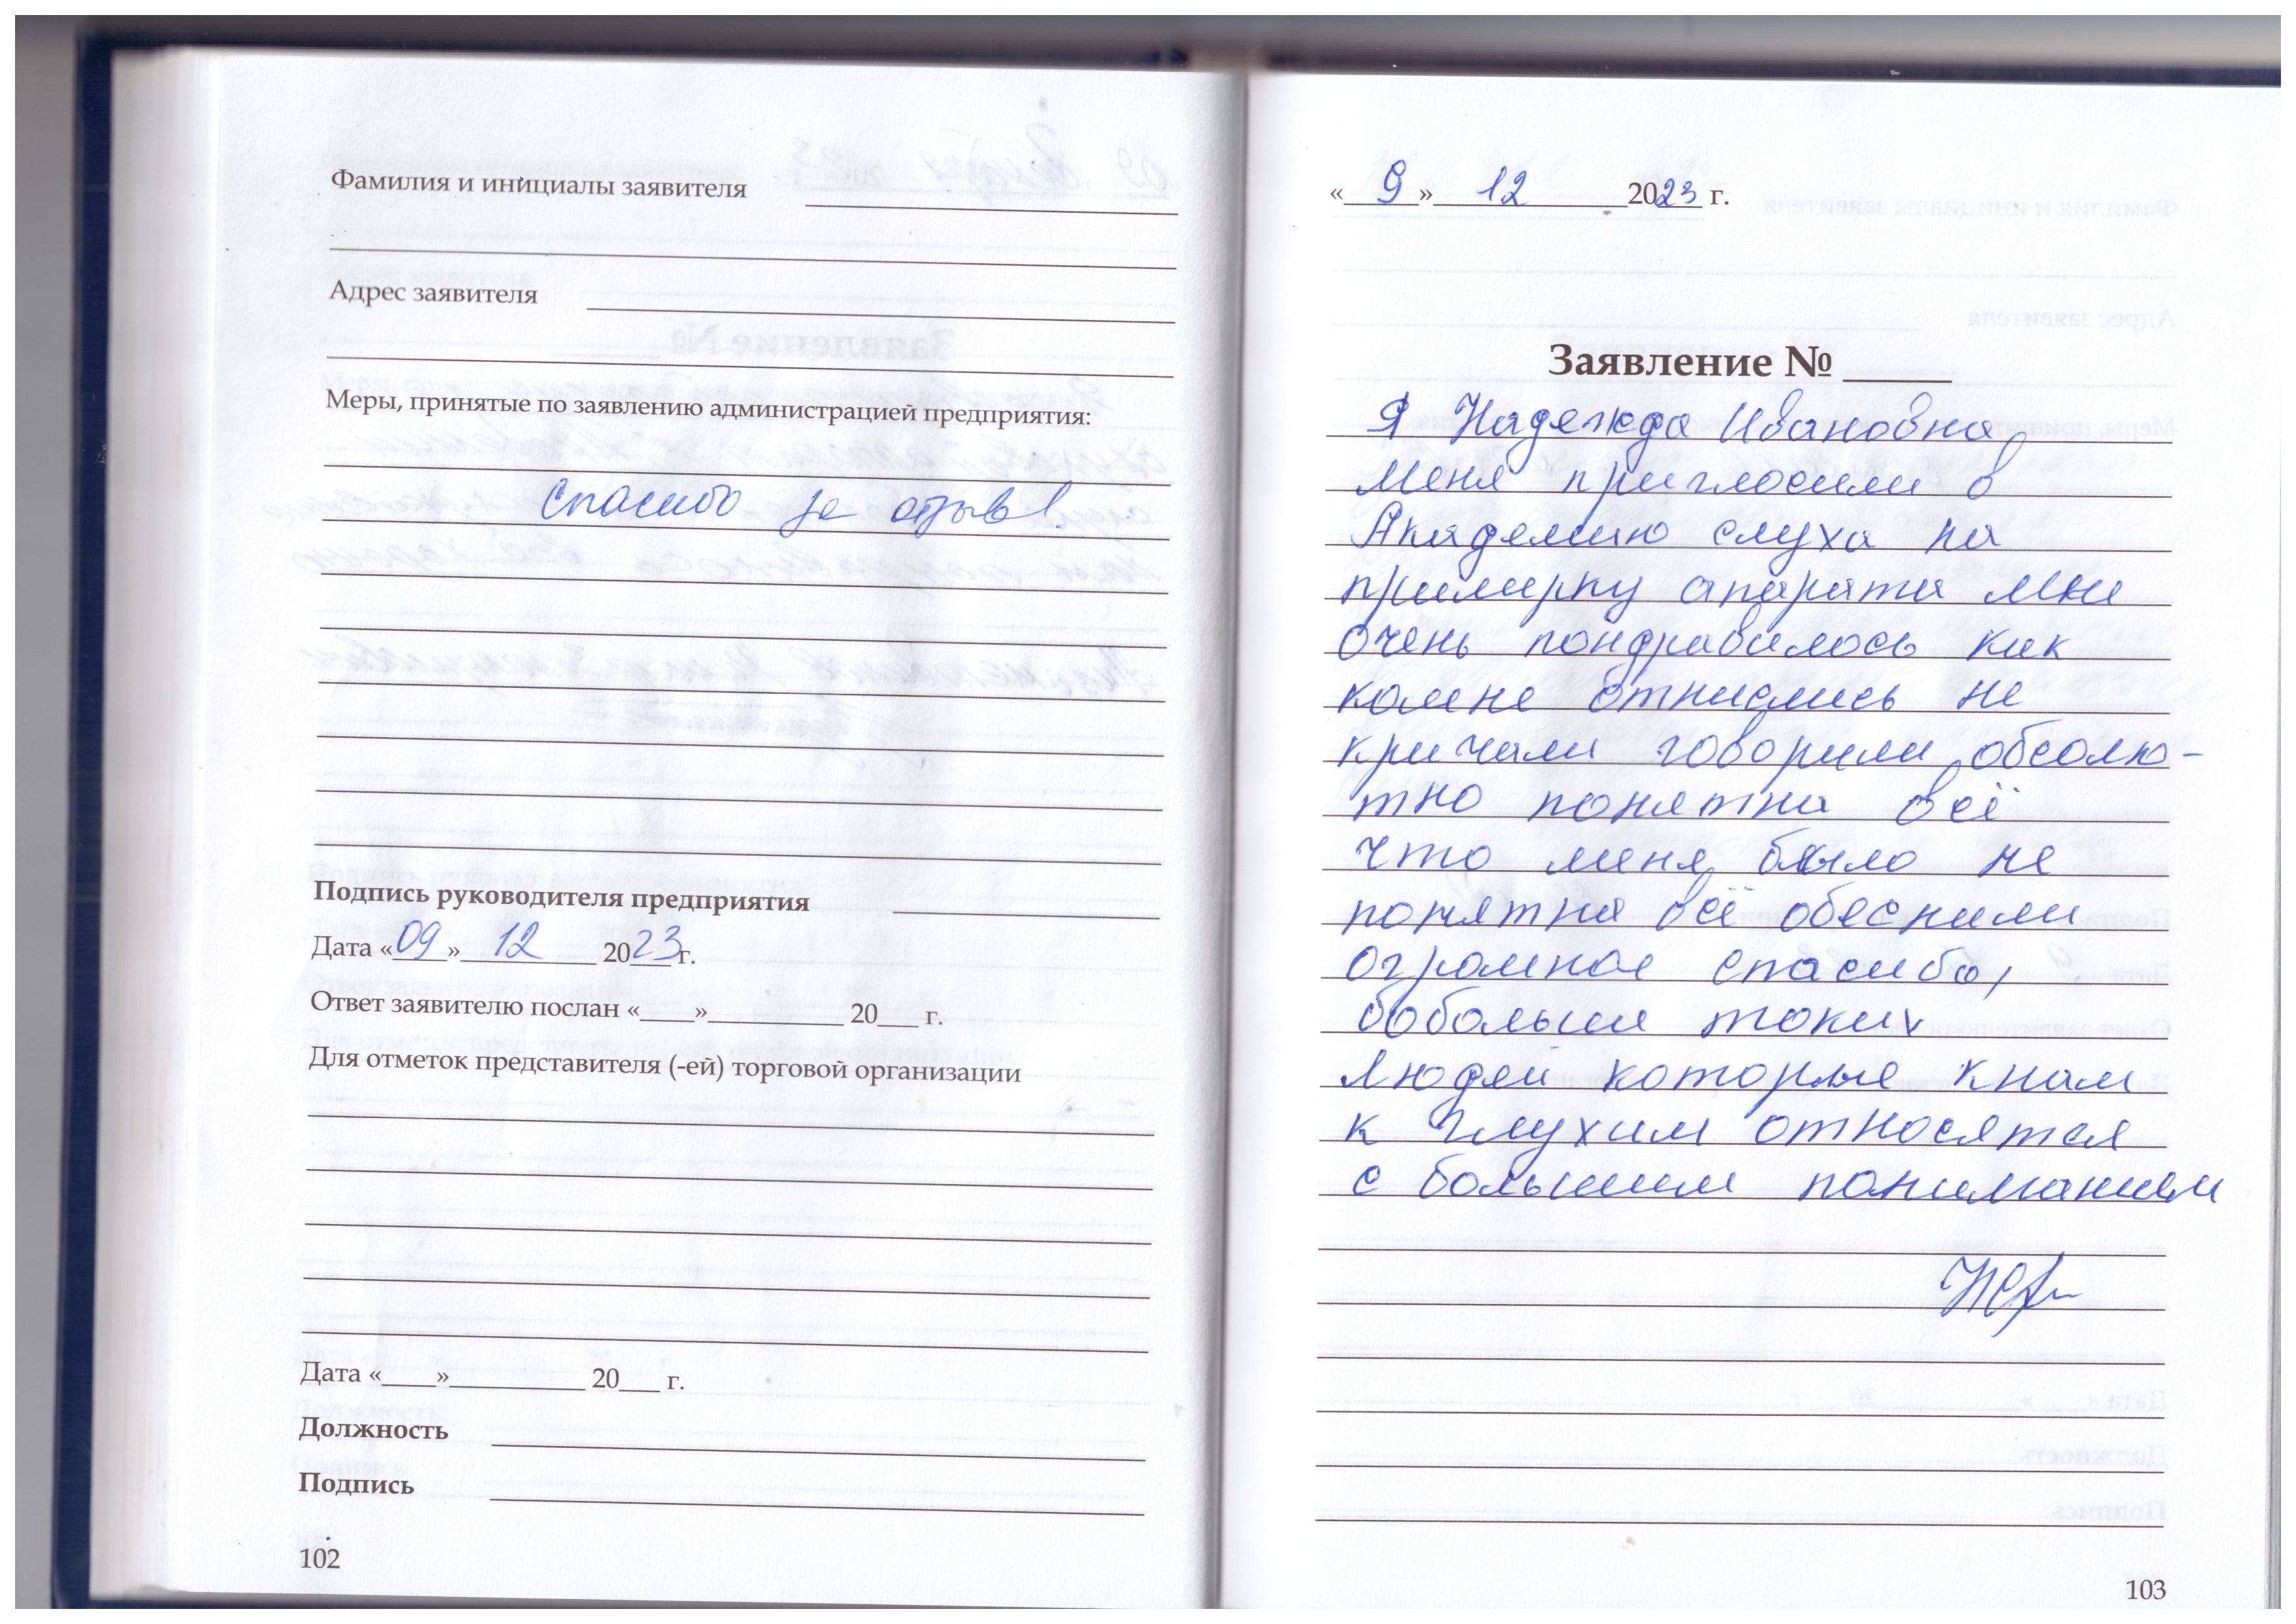 Фамилия и инициалы заявителя
Адрес заявителя
Меры, принятые по заявлению администрацией предприятия:
Спасибо за отзыв!
Подпись руководителя предприятия
Дата «09» 12 2023 г.
Ответ заявителю послан «____»__________ 20___ г.
Для отметок представителя (-ей) торговой организации
Дата «____»__________ 20___ г.
Должность
Подпись
102
«9» 12 2023 г.
Заявление № _____
Я Надежда Ивановна,
меня приглосили в
Академию слуха на
примерку апарата мне
очень пондравилось как
комне отнислись не
кричали говорили обсолю-
тно понятна всё
что меня было не
понятна всё обеснили
огромное спасибо,
бобольше токих
людей которые кнам
к глухим относятся
с большим пониманием
103